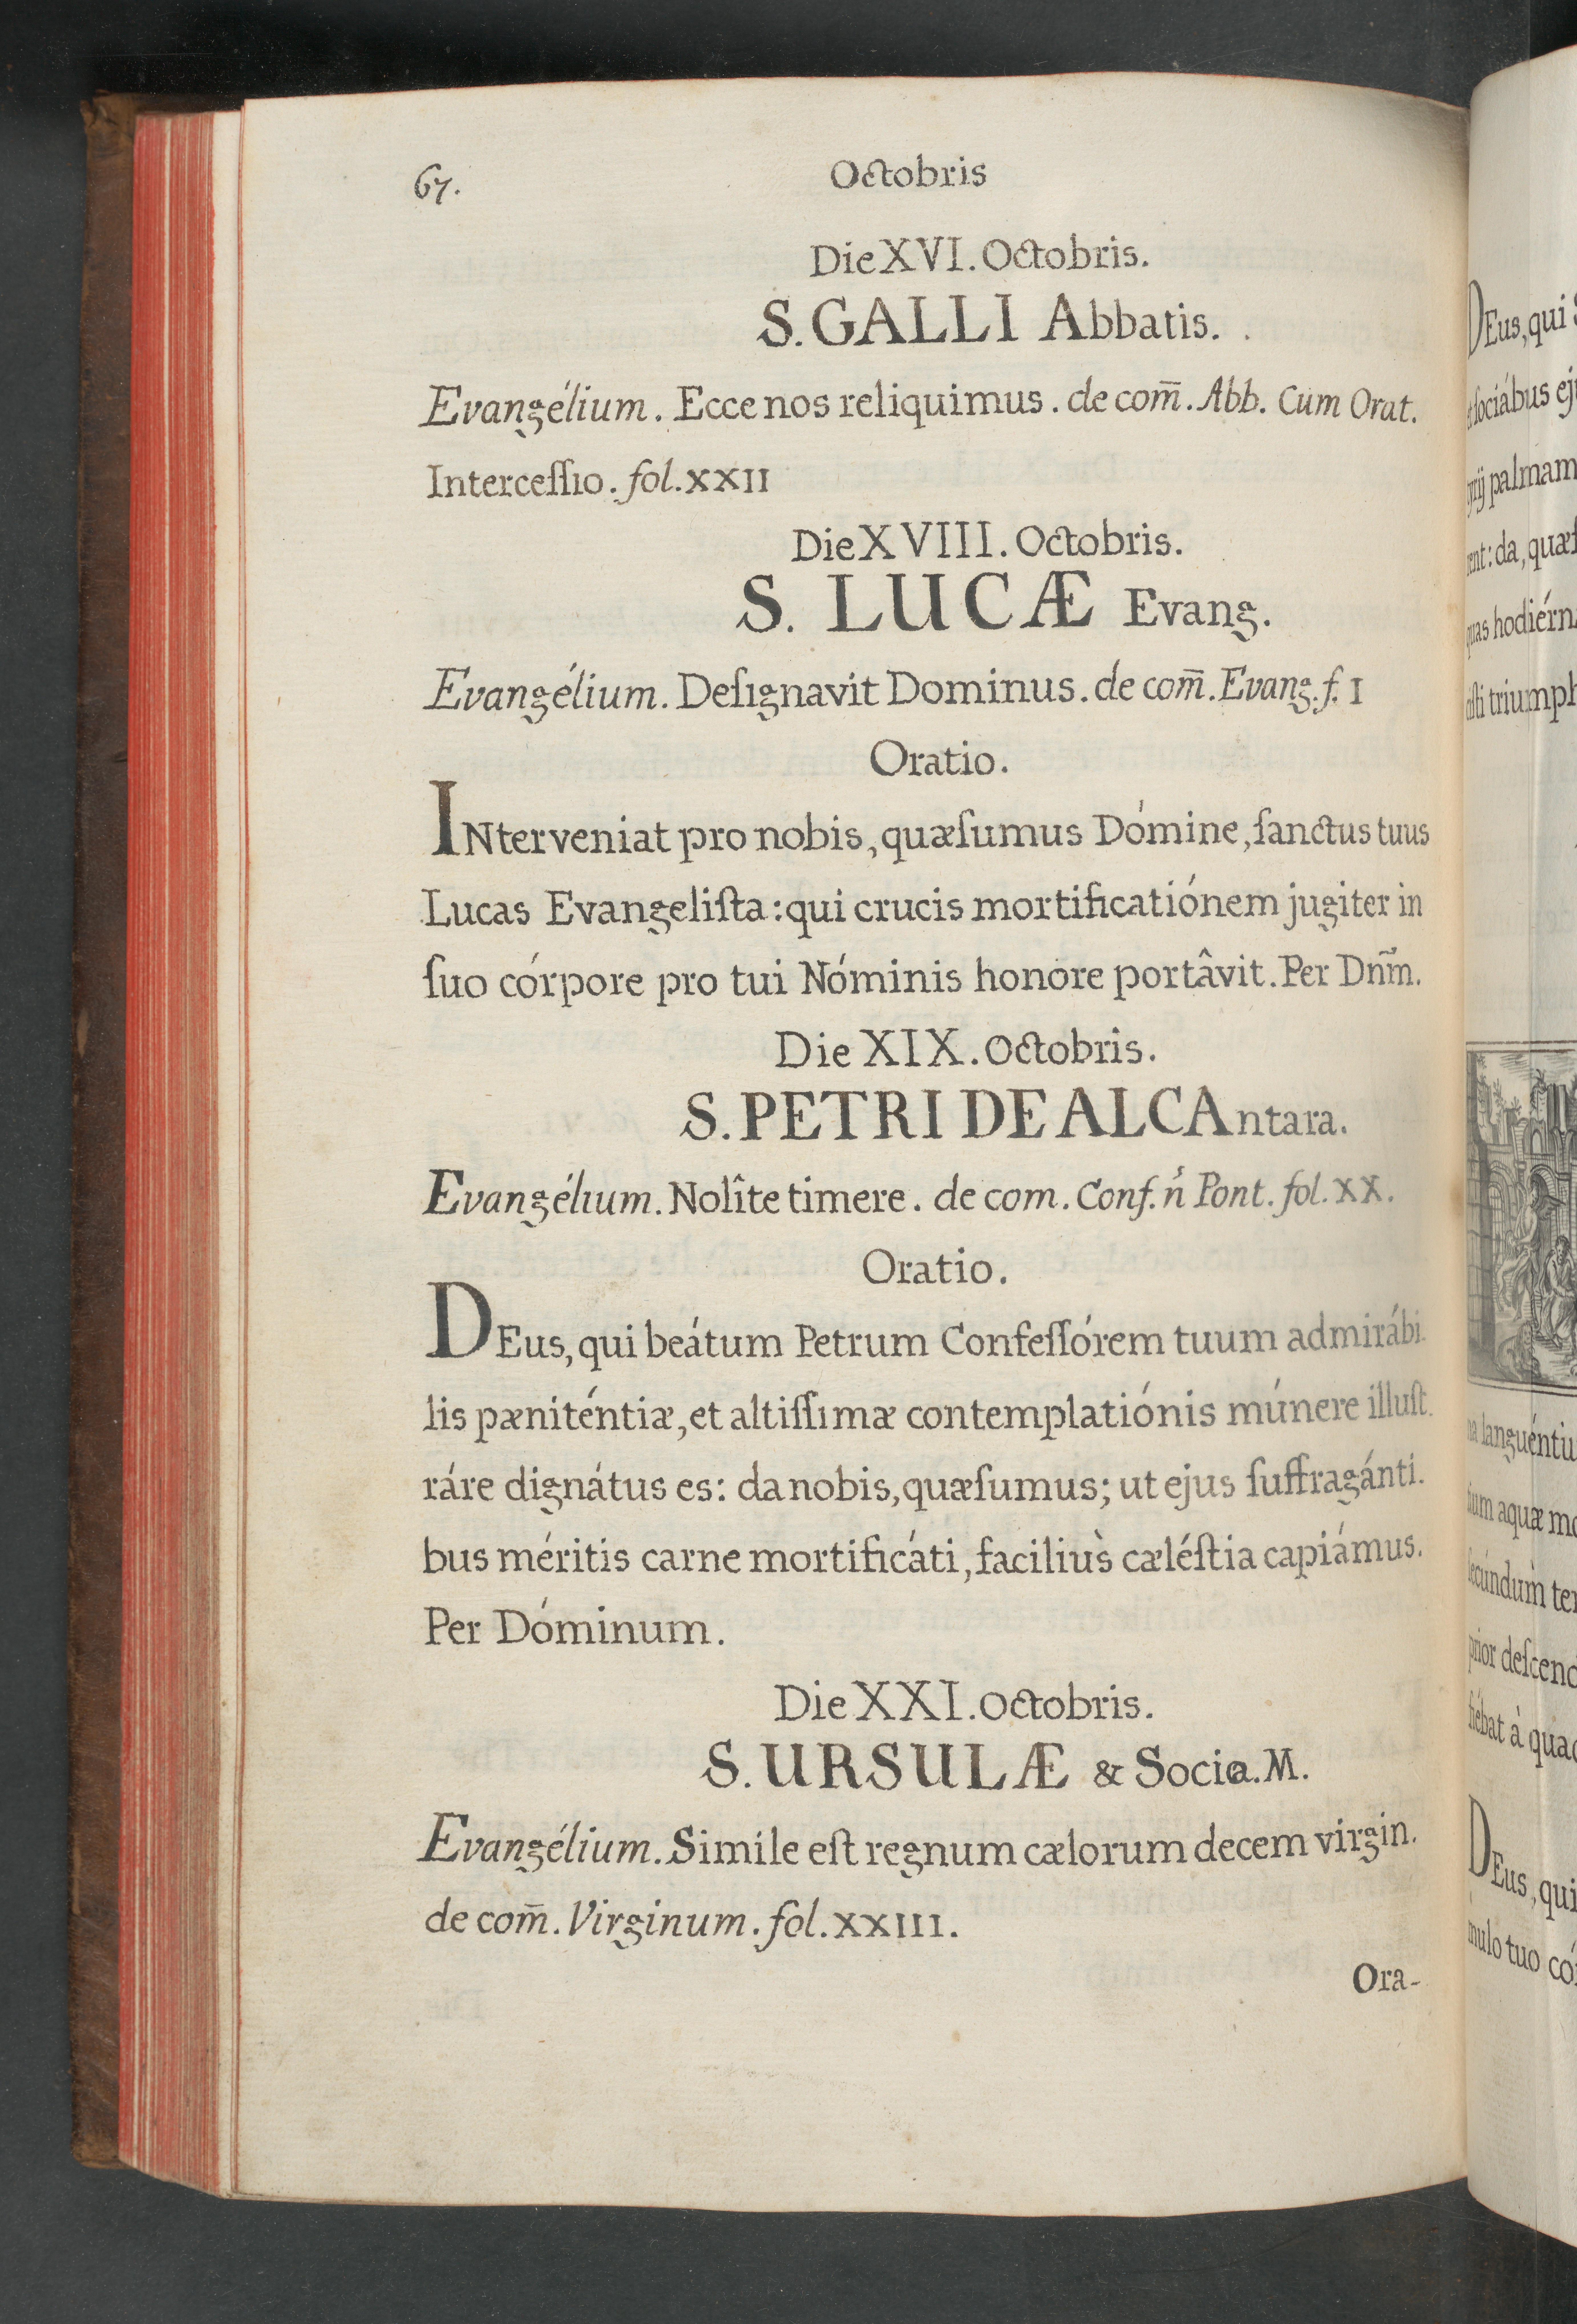 67.
Octobris
Die XVI. Octobris.
S. GALLI Abbatis.
Evangélium. Ecce nos reliquimus. de com̄. Abb. Cum Orat.
Interceſſio. fol. XXII
Die XVIII. Octobris.
S. LUCÆ Evang.
Evangélium. Deſignavit Dominus. de com̄. Evang. f. I
Oratio.
INterveniat pro nobis, quæſumus Dómine, ſanctus tuus
Lucas Evangeliſta: qui crucis mortificatiónem jugiter in
ſuo córpore pro tui Nóminis honore portâvit. Per Dnm̃.
Die XIX. Octobris.
S. PETRI DE ALCAntara.
Evangélium. Nolîte timere. de com. Conf. ń Pont. fol. XX.
Oratio.
DEus, qui beátum Petrum Confeſſórem tuum admirábi-
lis pæniténtiæ, et altiſſimæ contemplatiónis múnere illuſt-
ráre dignátus es: da nobis, quæſumus; ut ejus ſuffragánti-
bus méritis carne mortificáti, faciliùs cæléſtia capiámus.
Per Dóminum.
Die XXI. Octobris.
S. URSULÆ & Socia. M.
Evangélium. Simile eſt regnum cælorum decem virgin.
de com̄. Virginum. fol. XXIII.
Ora-
DEus, qui
ſociábus
palmam
da, quæſ
hodiérn
triumph
languéntiu
aquæ
ſecúndum
prior deſcend
à
DEus, qui
tuo